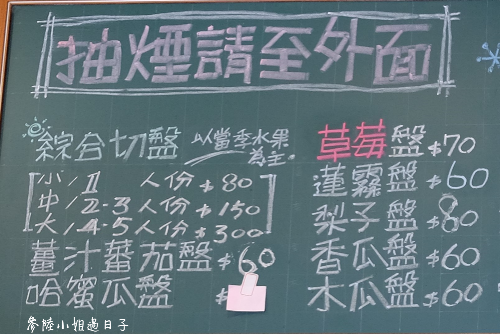 抽煙請至外面
綜合切盤 以當季水果為主
小/1 人份 $80
中/2-3人份 $150
大/4-5人份 $300
薑汁蕃茄盤 $60
哈蜜瓜盤 $
草莓盤 $70
蓮霧盤 $60
梨子盤 $80
香瓜盤 $60
木瓜盤 $60
參陸小姐過日子